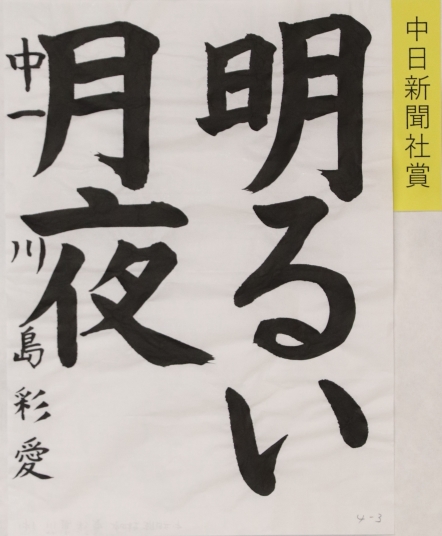 中日新聞社賞
明るい
月夜
中一 川島彩愛
4-3